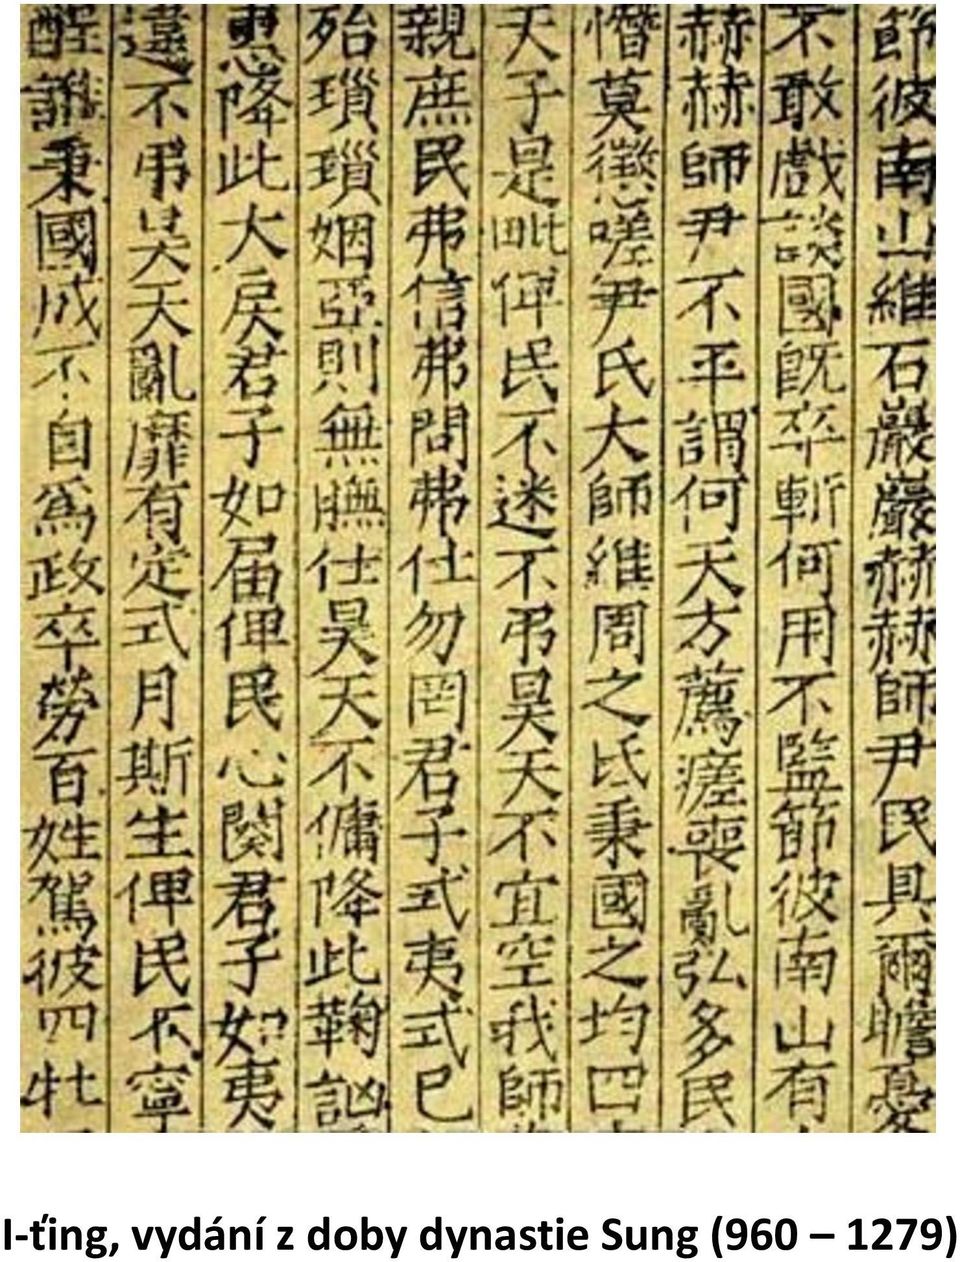 節彼南山維石巖巖赫赫師尹民具爾瞻憂
不敢戲談國旣卒斬何用不監節彼南山有
赫赫師尹不平謂何天方薦瘥喪亂弘多民
憯莫懲嗟尹氏大師維周之氐秉國之均四
天子是毗俾民不迷不弔昊天不宜空我師
親庶民弗信弗問弗仕勿罔君子式夷式已
殆瑣瑣姻亞則無膴仕昊天不傭降此鞠訩
惠降此大戾君子如届俾民心闋君子如夷
違不弔昊天亂靡有定式月斯生俾民不寧
酲誰秉國成不自爲政卒勞百姓駕彼四牡
I-ťing, vydání z doby dynastie Sung (960 – 1279)